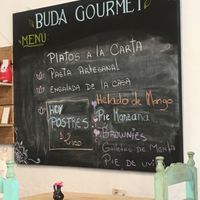 BUDA GOURMET
MENU
PLATOS A LA CARTA
PASTA ARTESANAL
ENSALADA DE LA CASA
HOY
POSTRES
Helado de Mango
PIE MANZANA
BROWNIES
Galletas de Manta
PIE DE